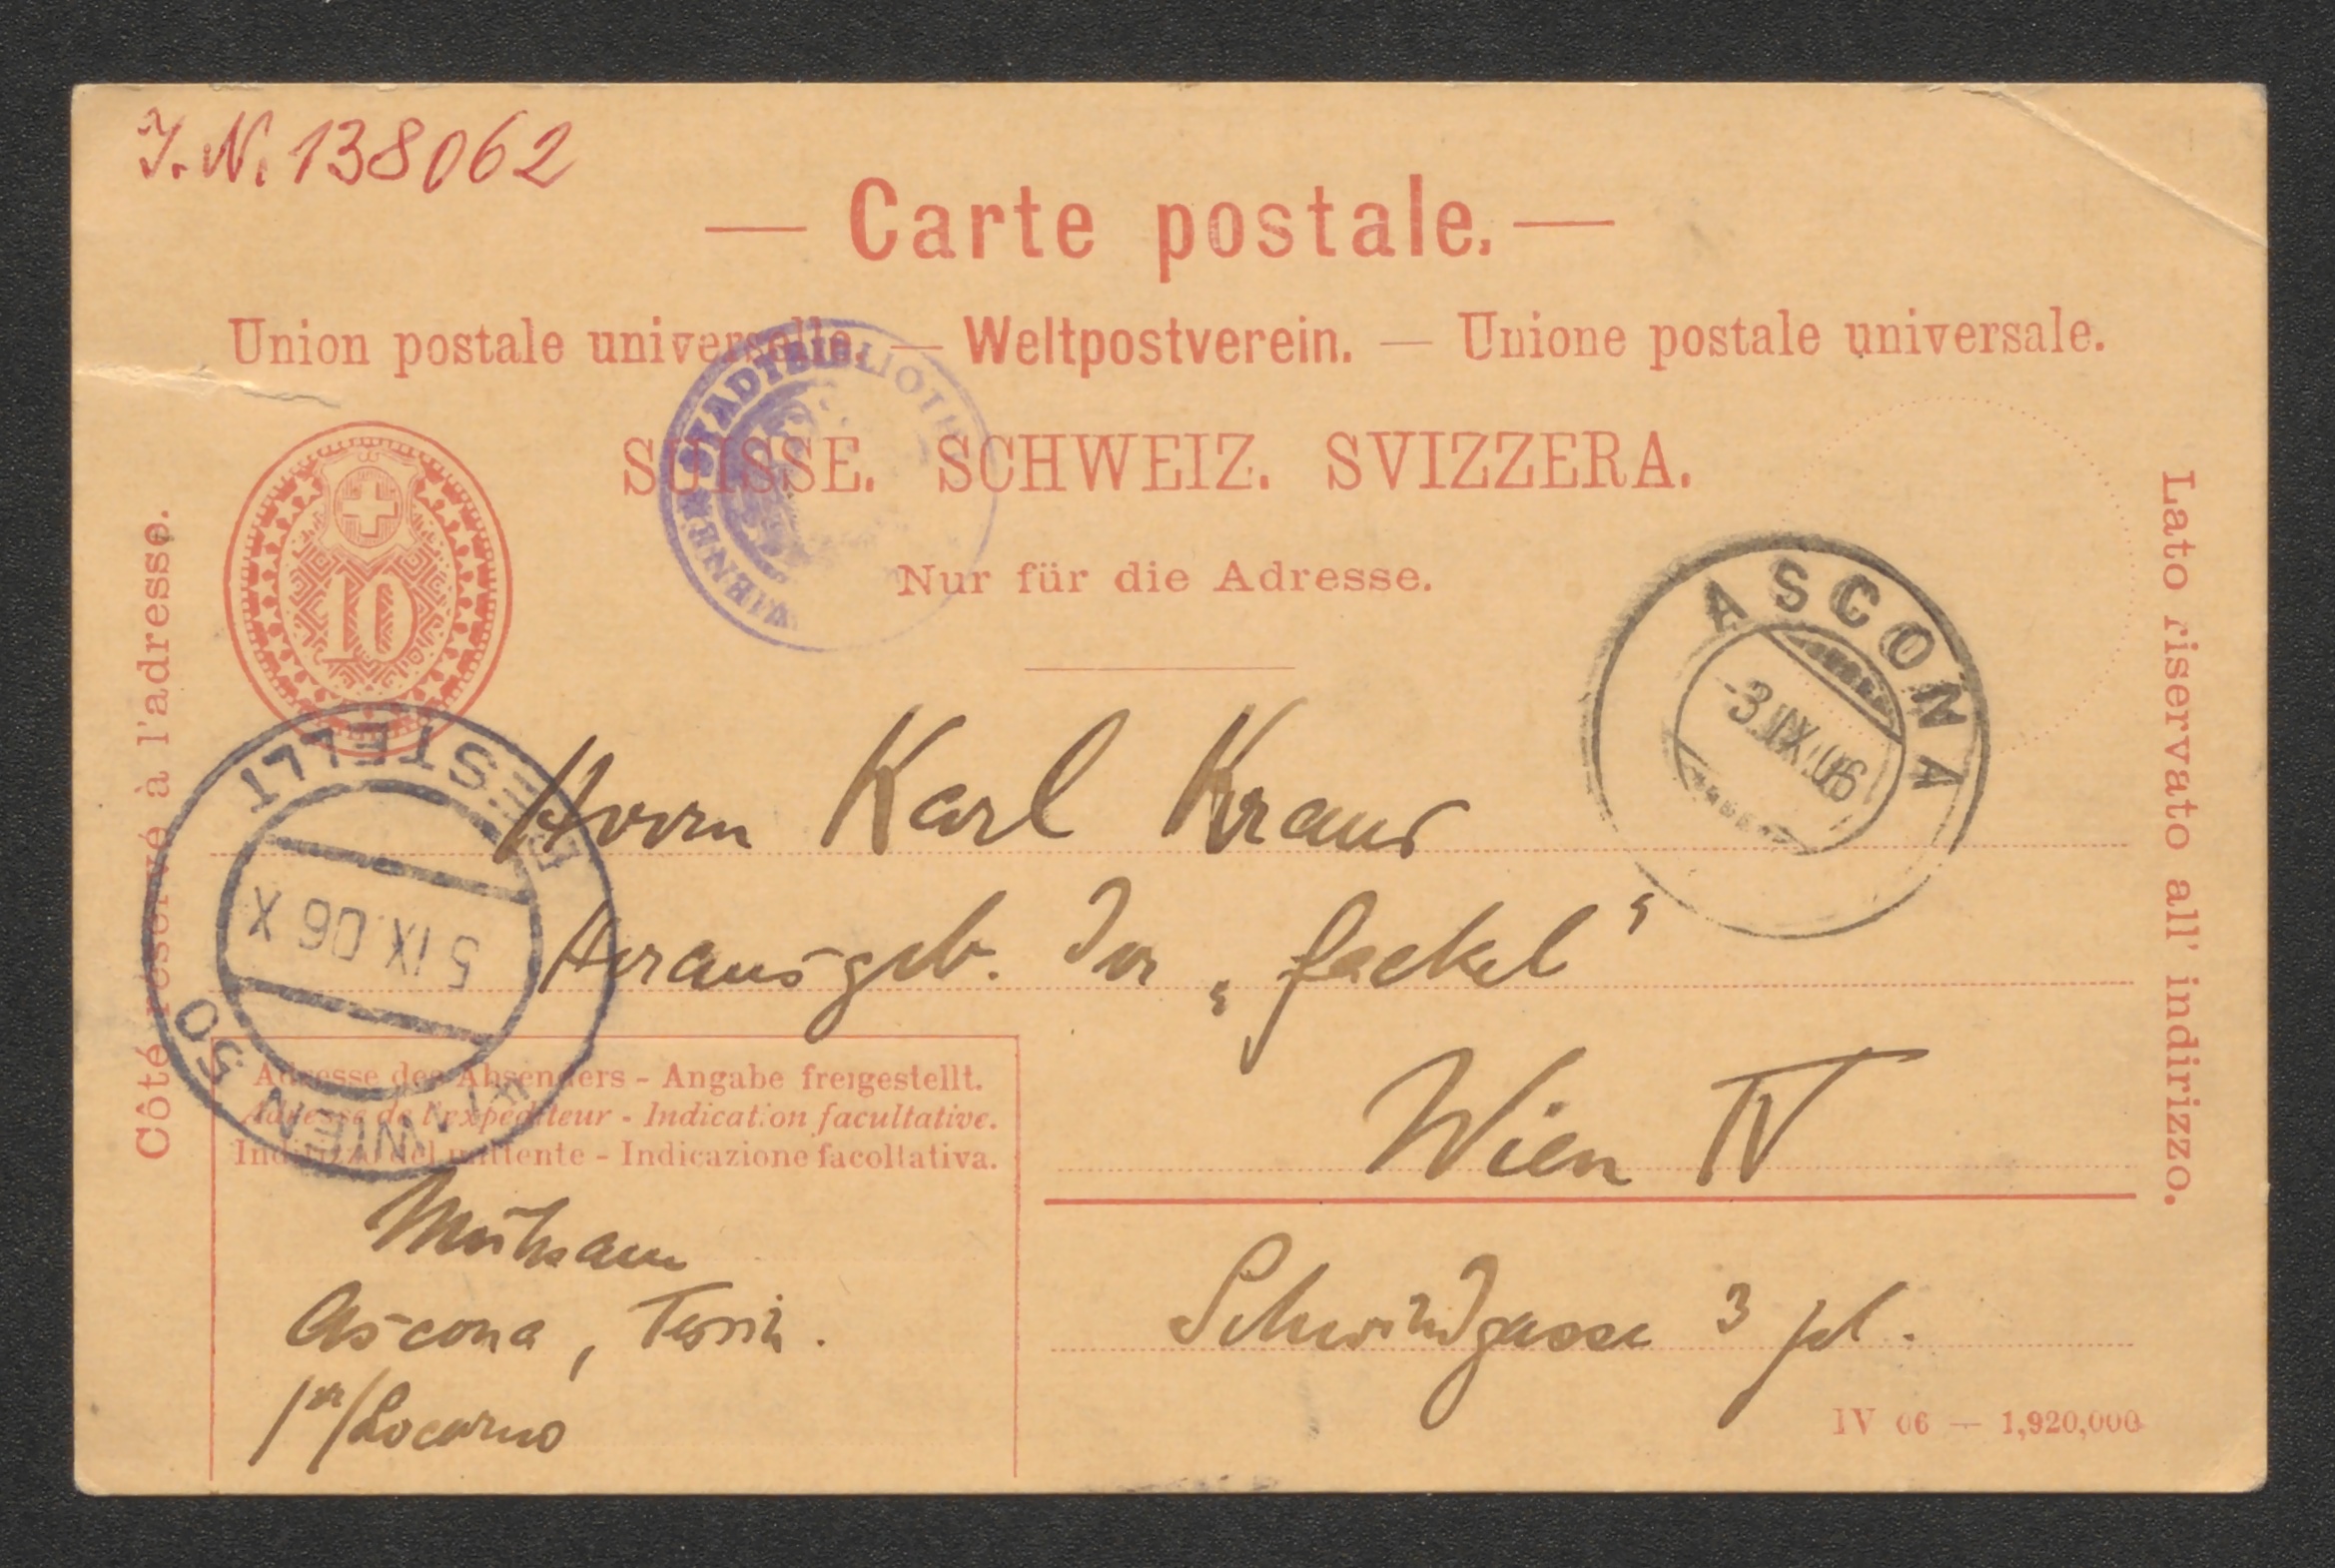 J. N. 138062
— Carte postale. —
Union postale universelle. — Weltpostverein. — Unione postale universale.
WIENER STADTBIBLIOTH
SUISSE. SCHWEIZ. SVIZZERA.
Nur für die Adresse.
Côté réservé à l'adresse.
Lato riservato all' indirizzo.
10
ASCONA
-3.IX.06
BESTELLT
5 IX 06 X
WIEN 50
Herrn Karl Kraus
Herausgeb. der „Fackel“
Wien IV
Schwindgasse 3 pt.
Adresse des Absenders - Angabe freigestellt.
Adresse de l'expéditeur - Indication facultative.
Indirizzo del mittente - Indicazione facoltativa.
Mühsam
Ascona, Tessin.
pr/Locarno
IV 06 — 1,920,000